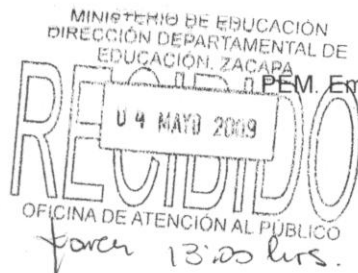 MINISTERIO DE EDUCACIÓN
DIRECCIÓN DEPARTAMENTAL DE
EDUCACIÓN, ZACAPA
PEM. Em
04 MAYO 2009
RECIBIDO
OFICINA DE ATENCIÓN AL PÚBLICO
13:00 hrs.